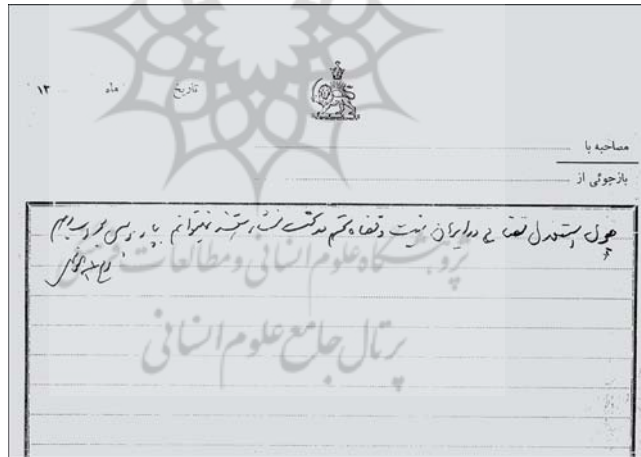 تاریخ ماه ۱۳
مصاحبه با
بازجوئی از
چون استقلال قضائی در ایران نیست و قضاة محترم در تحت فشار هستند نمیتوانم به بازپرسی جواب بدهم
پژوهشگاه علوم انسانی و مطالعات فرهنگی
پرتال جامع علوم انسانی